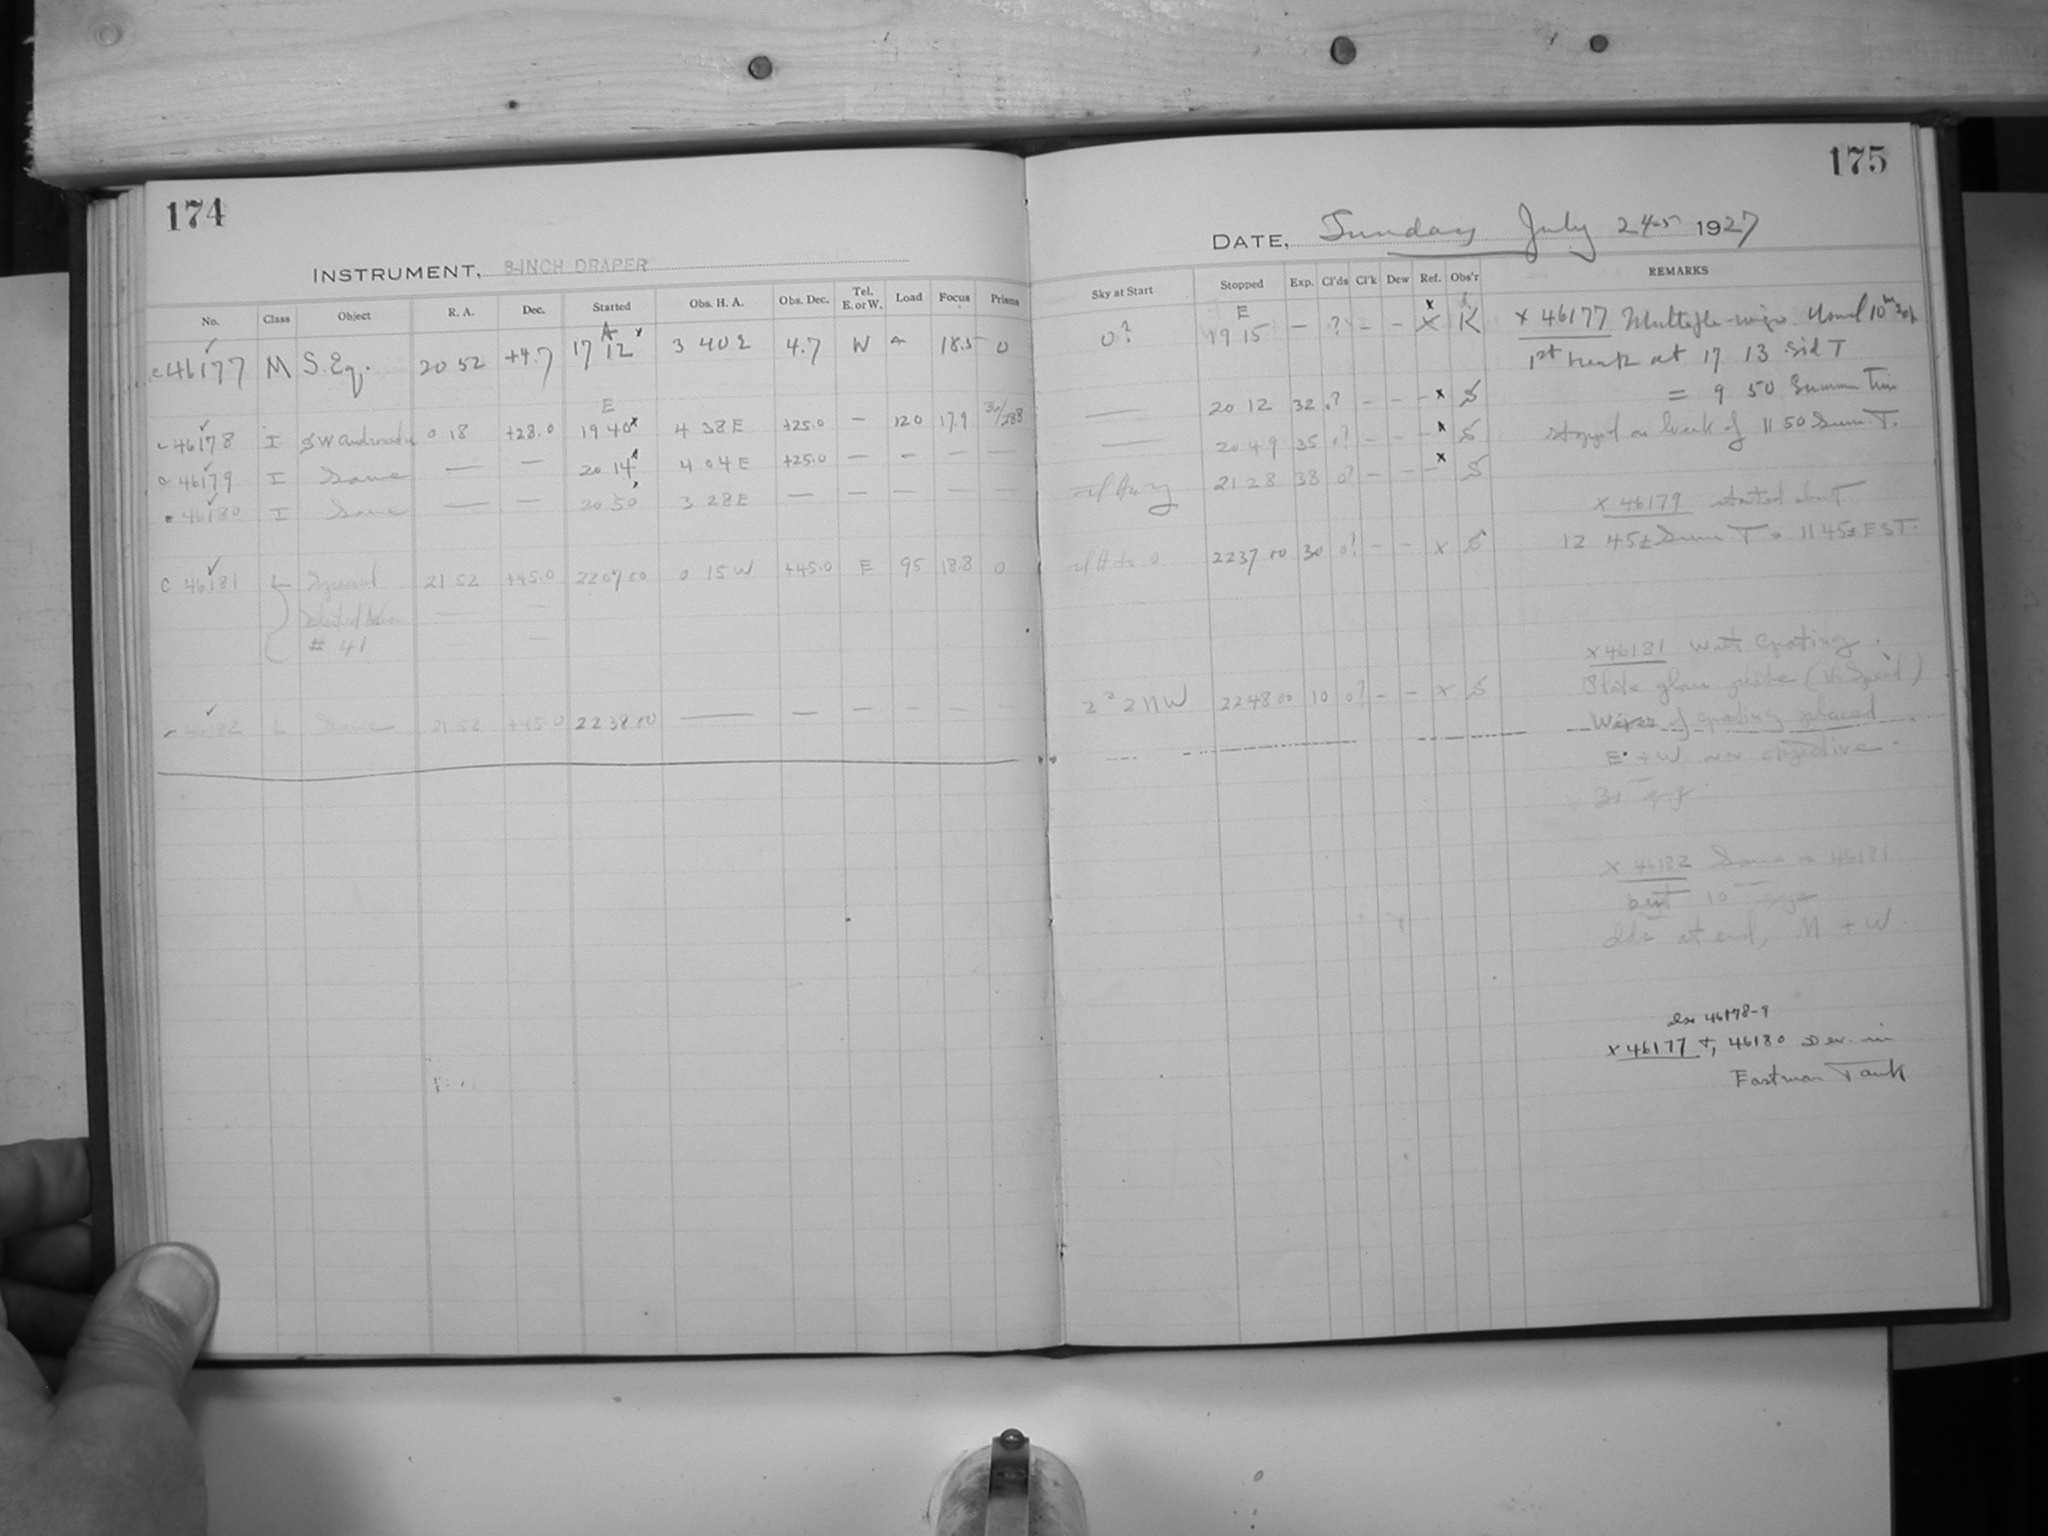 174
INSTRUMENT, 8-INCH DRAPER
No. Class Object R. A. Dec. Started Obs. H. A. Obs. Dec. Tel. E. or W. Load Focus Prisms
c 46177 M S. Eq. 20 52 +4.7 17 12 3 40 E 4.7 W 18.5 0
46178 I SW 0 18 +28.0 19 40 4 38 E +25.0 — 120 17.9
46179 I Same — — 20 14 4 04 E +25.0 — — — —
46180 I Same — — 20 50 3 28 E — — — — —
C 46181 L 21 52 +45.0 22 07 00 0 15 W +45.0 E 95 18.8 0
# 41
46182 L Same 21 52 +45.0 22 38 00 — — — — — —
175
DATE, Sunday July 24-5 1927
Sky at Start Stopped Exp. Cl'ds Cl'k Dew Ref. Obs'r REMARKS
0? E 19 15 — ? – – X K
— 20 12 32 ? – – – x S
— 20 49 35 0? – – – x S
21 28 38 0? – – – x S
22 37 00 30 0? – – x S
2 NW 22 48 00 10 0? – – x S
x 46177 Usual 10m
1st break at 17 13 Sid T
= 9 50 Summer Time
stopped on break of 11 50 Sum T.
x 46179 started about
12 45± Sum T = 11 45± EST.
x 46181 With Grating.
Plate glass
Wires of grating placed
E + W over objective.
x 46182 Same as 46181
but 10
at end, N + W.
also 46178-9
x 46177 +, 46180 Dev. in
Eastman Tank